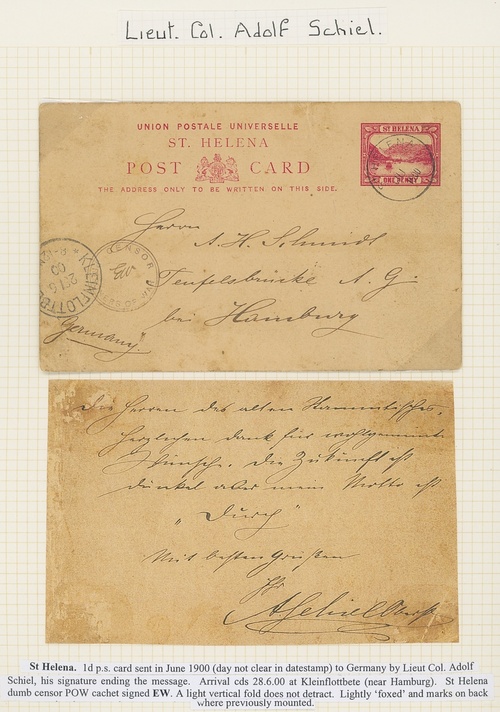 Lieut. Col. Adolf Schiel.
UNION POSTALE UNIVERSELLE
ST. HELENA
POST CARD
THE ADDRESS ONLY TO BE WRITTEN ON THIS SIDE.
ST HELENA
ONE PENNY
Herrn
A. H. Schmidt
Teufelsbrücke A. G.
bei Hamburg
Germany
CENSOR
EW
OF WAR
KLEINFLOTTBE
28.6
00
Die Herren des alten Stammtisches,
herzlichen dank für wohlgemeinte
Wünsche. Die Zukunft ist
dunkel aber mein Motto ist
„Durch"
Mit besten Grüßen
Ihr
ASchiel Oberst
St Helena. 1d p.s. card sent in June 1900 (day not clear in datestamp) to Germany by Lieut Col. Adolf
Schiel, his signature ending the message. Arrival cds 28.6.00 at Kleinflottbete (near Hamburg). St Helena
dumb censor POW cachet signed EW. A light vertical fold does not detract. Lightly 'foxed' and marks on back
where previously mounted.